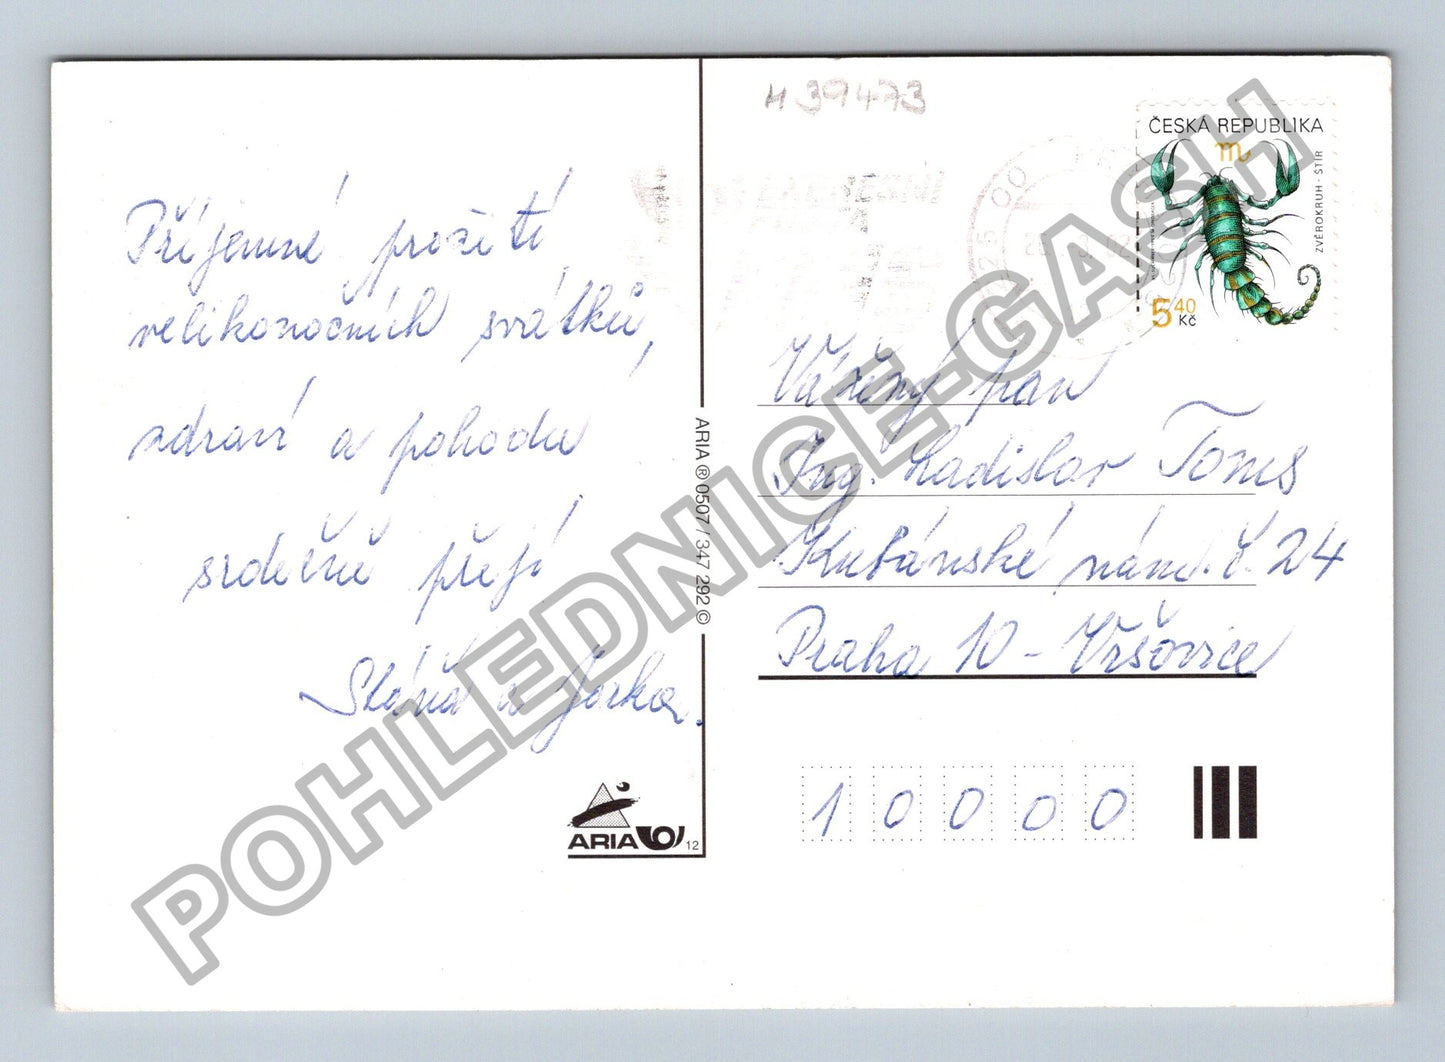 Příjemné prožití
velikonočních svátků,
zdraví a pohodu
srdečně přejí
Stáňa a Jarka.
H 39473
ČESKÁ REPUBLIKA
ZVĚROKRUH - ŠTÍR
5 40
Kč
Vážený pan
Ing. Ladislav Toms
Kubánské nám. č. 24
Praha 10 - Vršovice
10000
ARIA ® 0507 / 347 292 ©
ARIA
12
POHLEDNICE-GASH